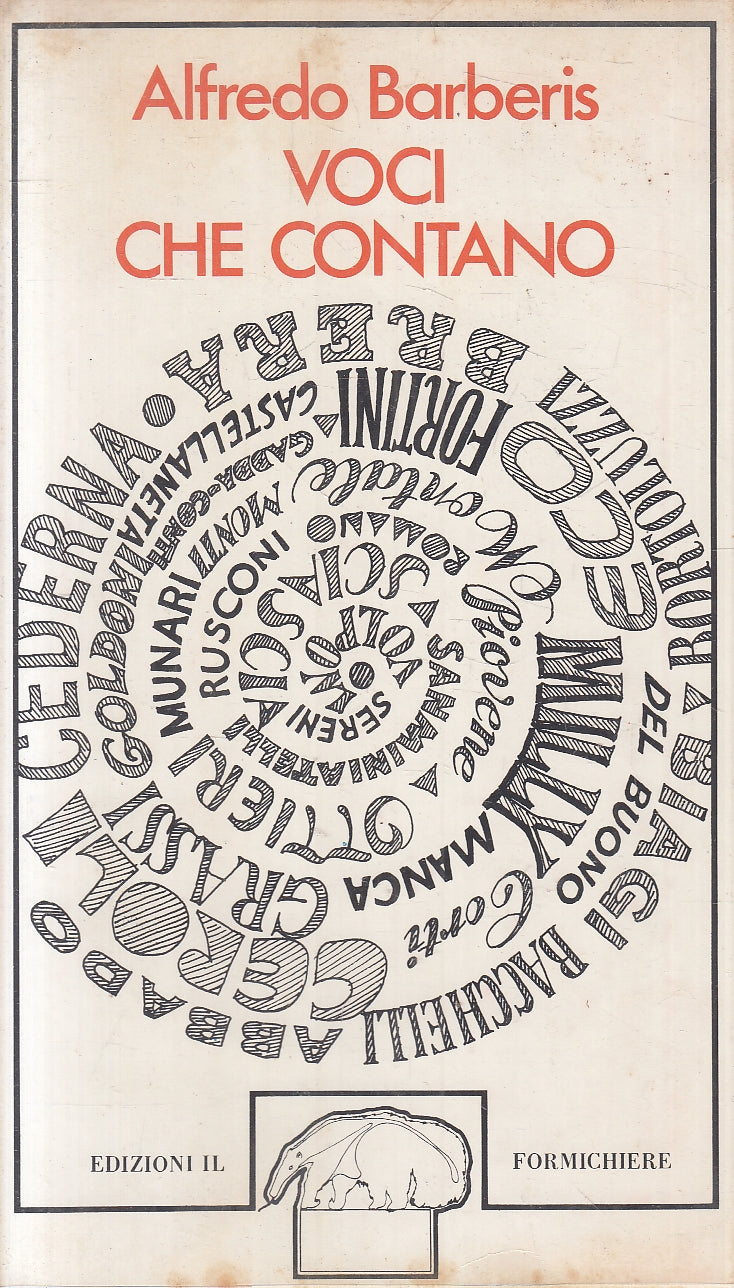 Alfredo Barberis
VOCI
CHE CONTANO
ABBADO
BACCHELLI
BIAGI
BORTOLUZZI
BRERA
CEDERNA
CEROLI
Corti
DEL BUONO
ECO
FORTINI
CASTELLANETA
GADDA-CONTI
GOLDONI
GRASSI
MANCA
MILLY
Montale
MONTI
MUNARI
OTTIERI
Piovene
ROMANO
RUSCONI
SANMINIATELLI
SCIASCIA
SERENI
VOLPONI
EDIZIONI IL FORMICHIERE